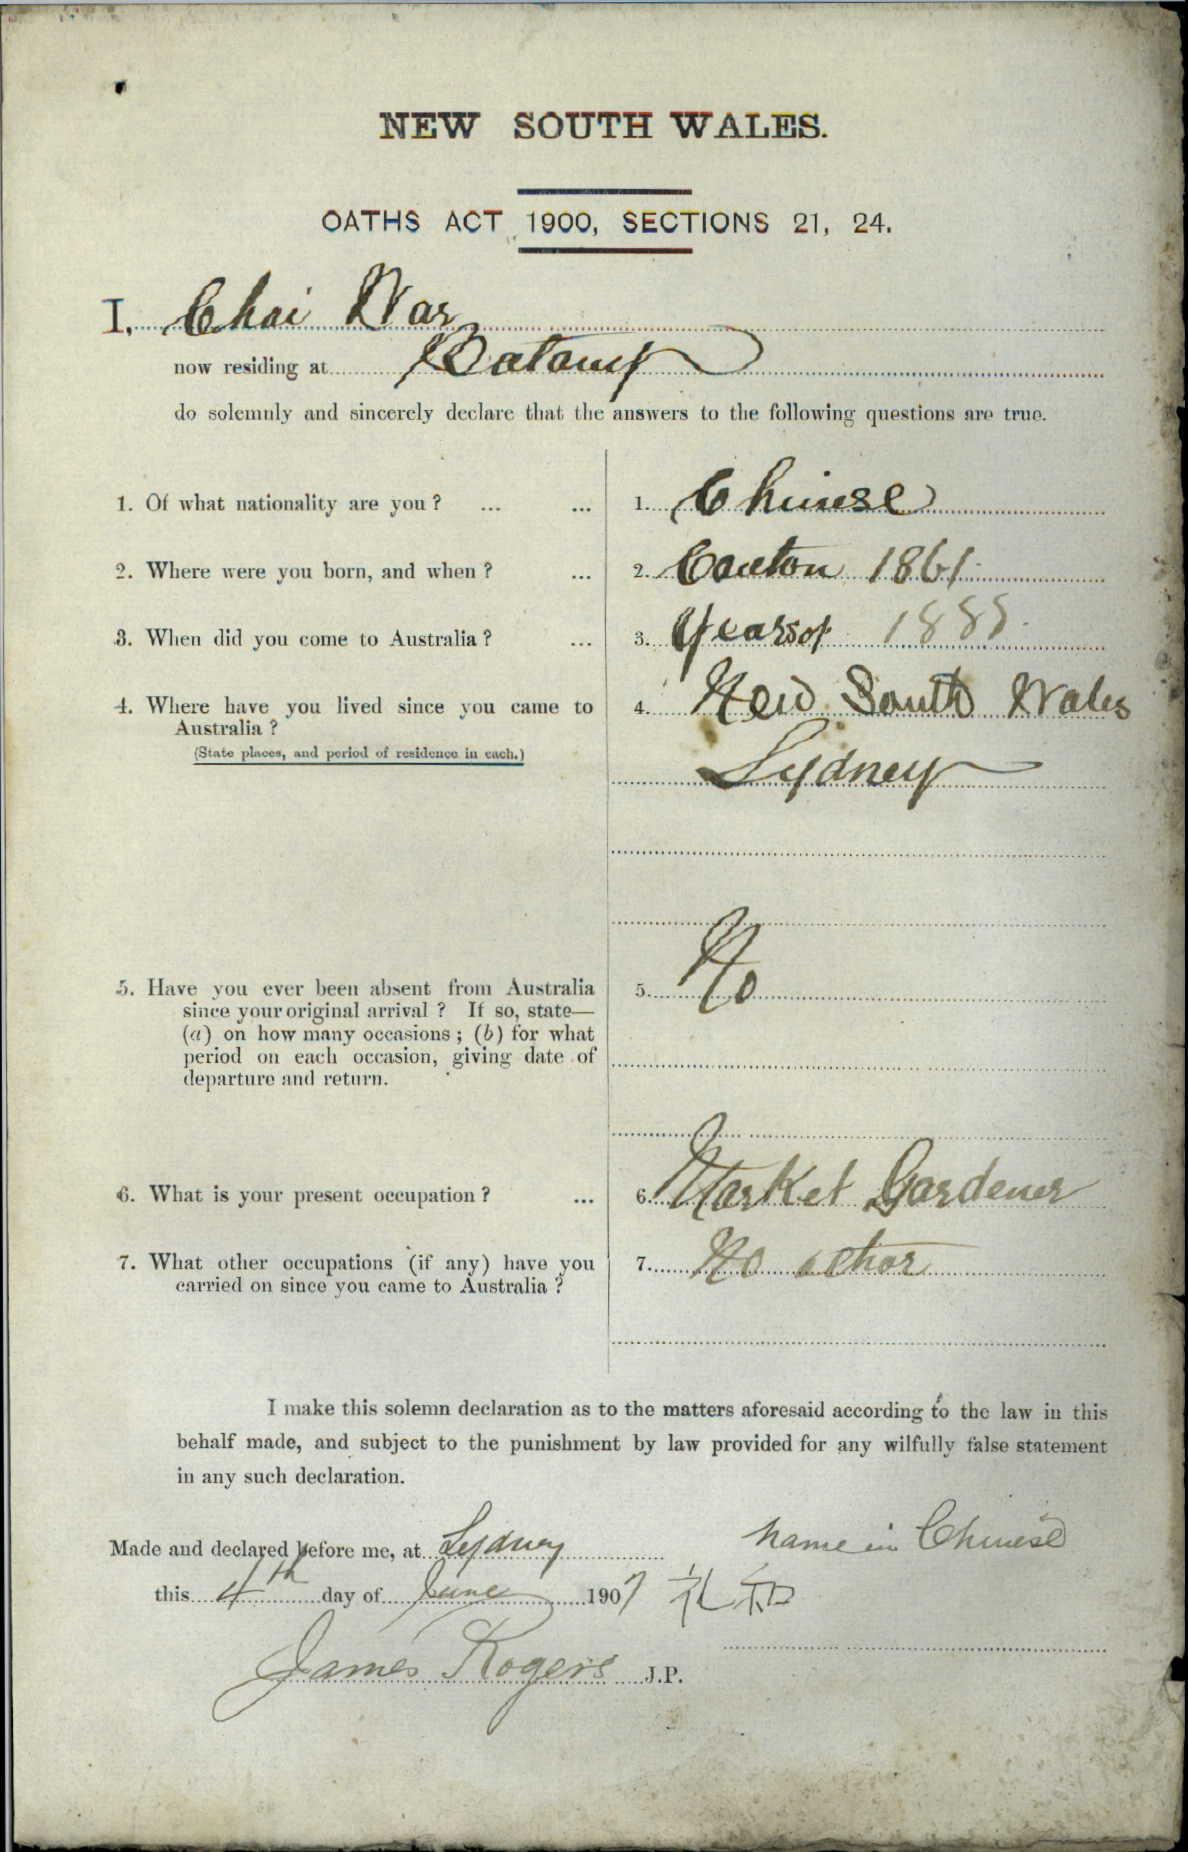 NEW SOUTH WALES.
OATHS ACT 1900, SECTIONS 21, 24.
I, Chai War
now residing at Botany
do solemnly and sincerely declare that the answers to the following questions are true.
1. Of what nationality are you ? ... ... 1. Chinese
2. Where were you born, and when ? ... 2. Canton 1861
3. When did you come to Australia ? ... 3. Year of 1888
4. Where have you lived since you came to 4. New South Wales
Australia ?
(State places, and period of residence in each.)
Sydney
5. Have you ever been absent from Australia 5. No
since your original arrival ? If so, state—
(a) on how many occasions ; (b) for what
period on each occasion, giving date of
departure and return.
6. What is your present occupation ? ... 6. Market Gardener
7. What other occupations (if any) have you 7. No other
carried on since you came to Australia ?
I make this solemn declaration as to the matters aforesaid according to the law in this
behalf made, and subject to the punishment by law provided for any wilfully false statement
in any such declaration.
Made and declared before me, at Sydney name in Chinese
this 4th day of June 1907 礼和
James Rogers J.P.